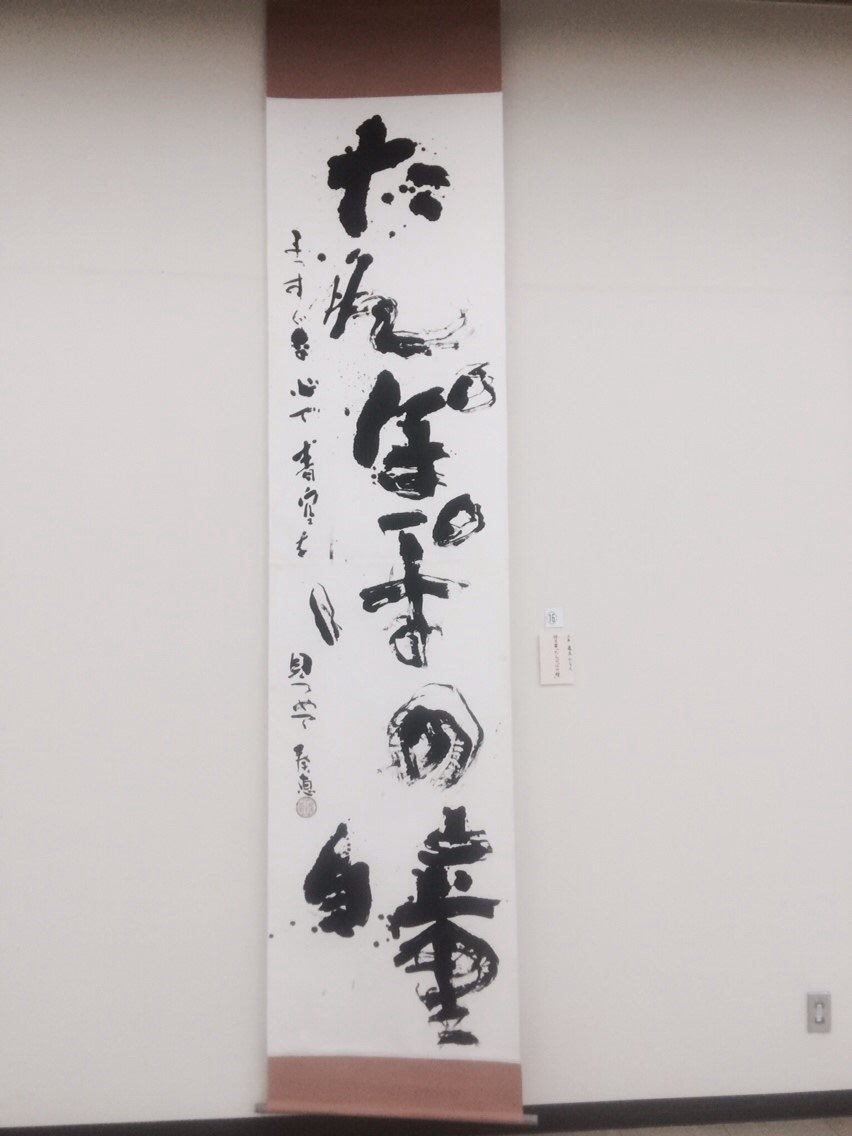 たんぽぽの瞳
まっすぐな心で青空を
見つめて
16